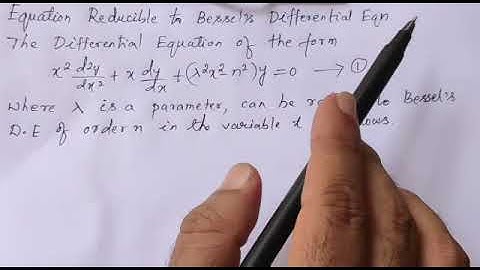 Equation Reducible to Bessel's Differential Eqn
The Differential Equation of the form
x² d²y/dx² + x dy/dx + (λ²x² - n²)y = 0 → ①
where λ is a parameter, can be Bessel's
D.E of order n in the variable t